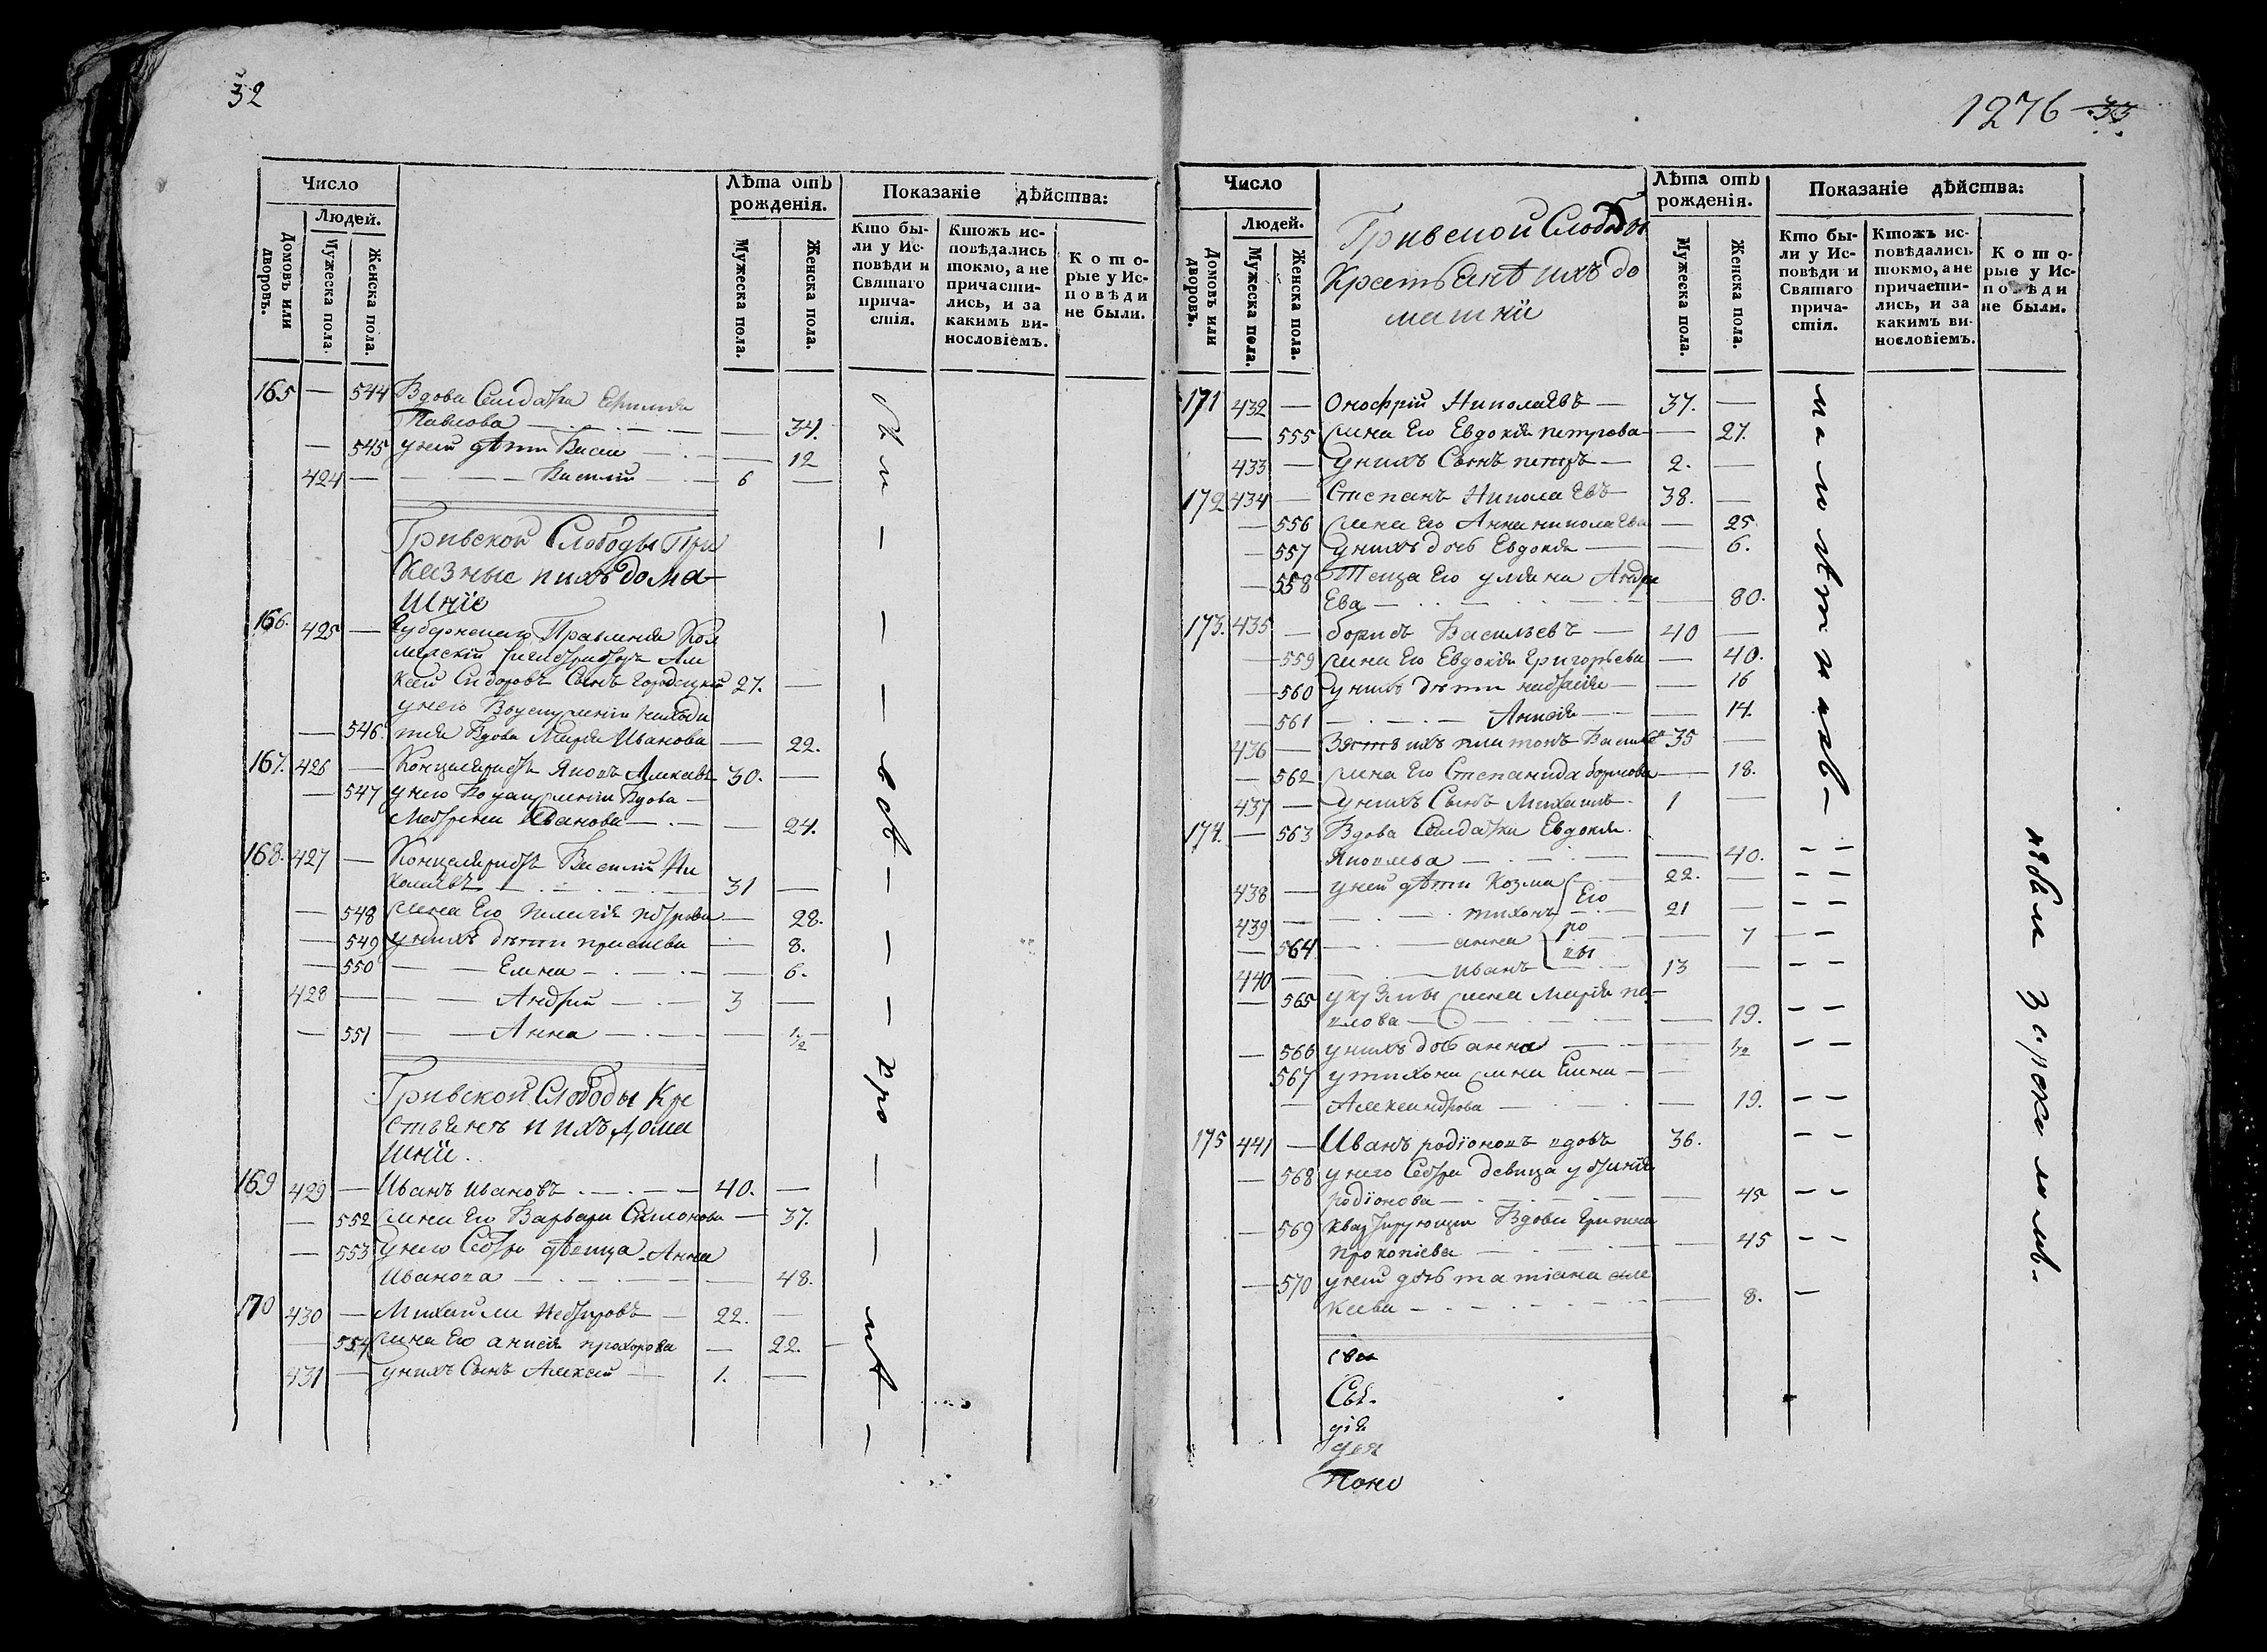 32
Число
Лѣта отъ рожденія.
Показаніе дѣйства:
Людей.
Домовъ или дворовъ.
Мужеска пола.
Женска пола.
Мужеска пола.
Женска пола.
Кто бы-
ли у Ис-
повѣди и
Святаго
прича-
стія.
Ктожъ ис-
повѣдались
токмо, а не
причасти-
лись, и за
какимъ ви-
нословіемъ.
Кото-
рые у Ис-
повѣди
не были.
165 — 544 Вдова Салдатка
Павлова — — 34.
— 545 у ней дѣти — 12
424 — — Василій — 6 —
Гривской Слободы При
казные и ихъ дома-
шніе
166. 425 — Губернскаго Правленія Кол
Але
ксей Сидоровъ Сынъ 27. —
у него
— 546. Вдова Марія Иванова — 22.
167. 426 — Концеляристъ Яковъ 30. —
— 547 у него Вдова —
Иванова — — 24.
168. 427 — Концеляристъ Василій Ни
колаевъ — 31 —
— 548 жена Его Пелагія петрова — 28.
— 549 у нихъ дѣти — 8.
— 550 — — Елена — — 6.
428 — — — Андрей — 3 —
— 551 — — Анна — — 1/2
Гривской Слободы Кре
стьянъ и ихъ дома
шніи.
169 429 — Иванъ Ивановъ — 40. —
— 552 жена Его Варвара Симонова — 37.
— 553 у него Сестра дѣвица Анна
Иванова — — 48.
170 430 — Михайла — 22. —
— 554 жена Его анисія прохорова — 22.
431 — у нихъ Сынъ Алексей — 1. —
1276 33
Число
Лѣта отъ рожденія.
Показаніе дѣйства:
Людей.
Домовъ или дворовъ.
Мужеска пола.
Женска пола.
Гривской Слободы
Крестьянѣ и ихъ до
машніи
Мужеска пола.
Женска пола.
Кто бы-
ли у Ис-
повѣди и
Святаго
прича-
стія.
Ктожъ ис-
повѣдались
токмо, а не
причасти-
лись, и за
какимъ ви-
нословіемъ.
Кото-
рые у Ис-
повѣди
не были.
171 432 — Онофрій Николаевъ — 37. —
— 555 жена Его Евдокія петрова — 27.
433 — у нихъ Сынъ петръ — 2. —
172 434 — Степанъ Николаевъ — 38. —
— 556 жена Его Анна николаева — 25.
— 557 у нихъ дочь Евдокія — — 6.
— 558 Теща Его уліяна Андре
Ева — — 80.
173. 435 — борисъ Васильевъ — 40 —
— 559 жена Его Евдокія Григорьева — 40.
— 560 у нихъ дѣти — — 16
— 561 — Анисія — — 14.
436 — Зять ихъ платонъ 35 —
— 562 жена Его Степанида борисова — 18.
437 — у нихъ Сынъ Михаилъ. 1 —
174. — 563 Вдова Салдатка Евдокія.
Яковлева — — 40. — —
438 — у ней дѣти Козма 22. — — —
439 — — тихонъ 21 — — —
— 564 — анна — 7 — —
440 — — иванъ 13 — — —
— 565 жена Марія па-
влова — — 19. — —
— 566 у нихъ дочь анна — — 1/2 — —
567 у тихона жена Елена —
— Александрова — — 19. — —
175 441 — Иванъ родіоновъ вдовъ 36. — —
— 568 у него Сестра девица
родіонова — — 45 — —
— 569 квартирующая Вдова
прокопіева — — 45 — —
— 570 у ней дочь татіана але
ксеева — — 8. —